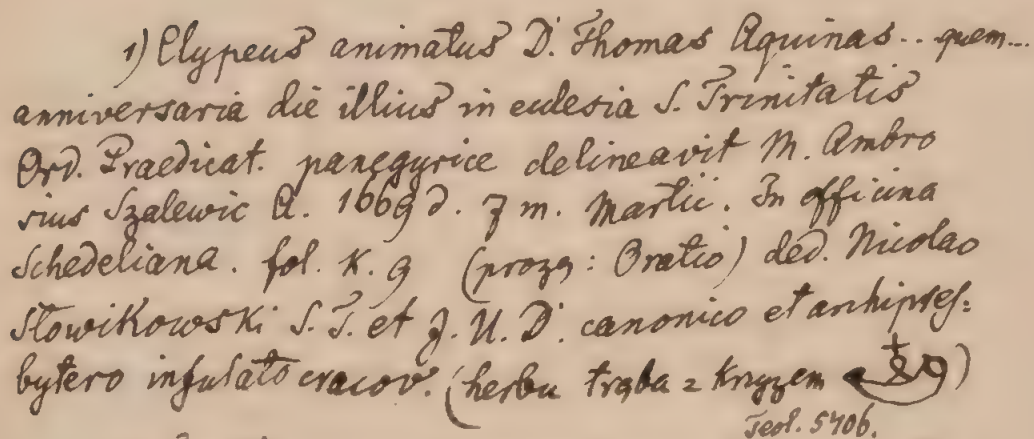 1) Clypeus animatus D. Thomas Aquinas .. quem...
anniversaria die illius in eclesia S. Trinitatis
Ord. Praedicat. panegyrice delineavit M. Ambro
sius Szalewic A. 1669 d. 7 m. Martii. In officina
Schedeliana. fol. K. 9 (prozą: Oratio) ded. Nicolao
Słowikowski S. T. et J. U. D. canonico et archipres=
bytero infulato cracov. (herbu trąba z krzyżem )
Teol. 5406.